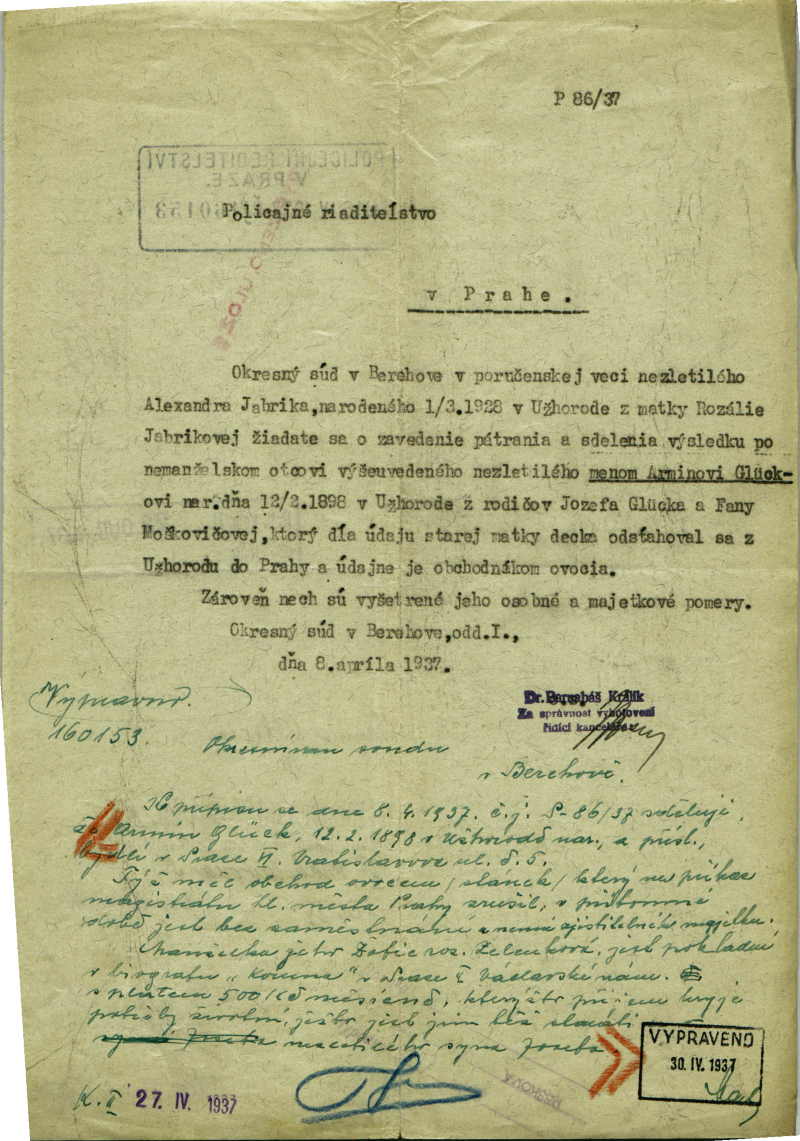 P 86/37
POLICEJNÍ ŘEDITELSTVÍ
V PRAZE.
160153
Policajné riaditeľstvo
v Prahe.
Okresný súd v Berehove v poručenskej veci nezletilého
Alexandra Jabrika,narodeného 1/3.1928 v Užhorode z matky Rozálie
Jabrikovej žiadate sa o zavedenie pátrania a sdelenia výsledku po
nemanželskom otcovi výšeuvedeného nezletilého menom Arminovi Glück-
ovi nar.dňa 12/2.1898 v Užhorode z rodičov Jozefa Glücka a Fany
Moškovičovej,ktorý dľa údaju starej matky decka odsťahoval sa z
Užhorodu do Prahy a údajne je obchodníkom ovocia.
Zároveň nech sú vyšetrené jeho osobné a majetkové pomery.
Okresný súd v Berehove,odd.I.,
dňa 8.apríla 1937.
Dr. Barnabáš Králik
Za správnost vyhotovení
řídící kanceláře:
160153.
Okresnímu soudu
v Berehově.
K přípisu ze dne 8.4.1937. č.j. P-86/37 sděluji,
že Armin Glück, 12.2.1898 v Užhorodě nar., a přísl.,
bydlí v Praze VI. Vratislavova ul. č. 5.
Týž měl obchod ovocem /stánek/ který na příkaz
magistrátu hl. města Prahy zrušil, v přítomné
době jest bez zaměstnání a nemá zjistitelného majetku.
Manželka jeho roz. Zelenková, jest pokladní
v biografu „Koruna" v Praze II Václavské nám.
s platem 500 Kč měsíčně, kterýžto příjem kryje
potřeby životní, ježto jest jim též
syna Josefa nezletilého syna Josefa
VYPRAVENO
30. IV. 1937
K. II 27. IV. 1937